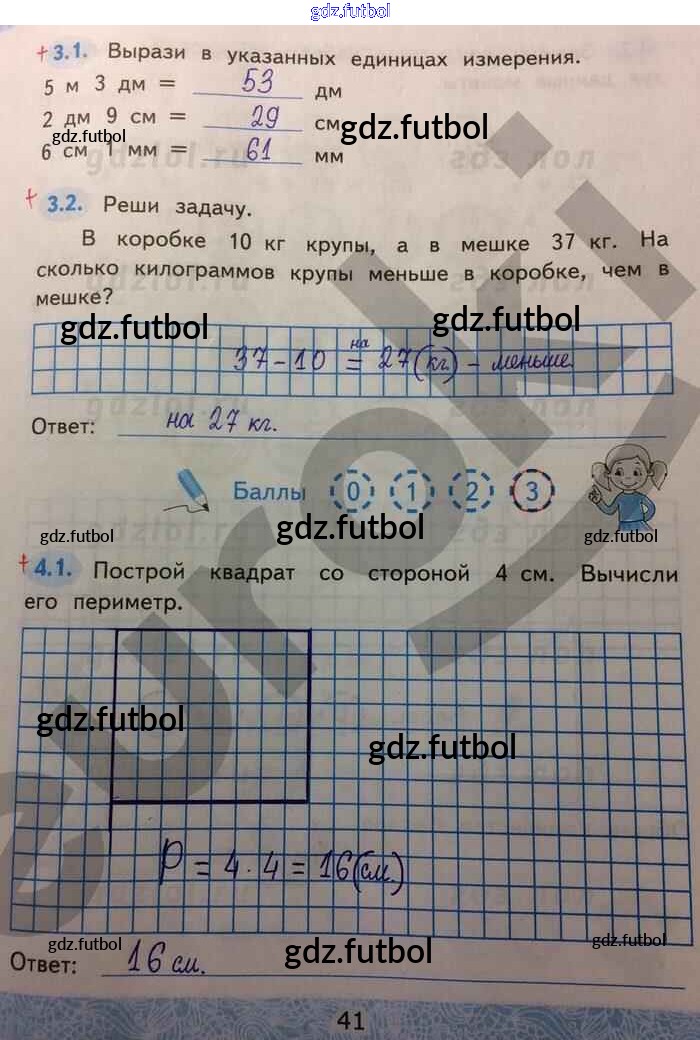 gdz.futbol
+ 3.1. Вырази в указанных единицах измерения.
5 м 3 дм = 53 дм
2 дм 9 см = 29 см
gdz.futbol gdz.futbol
6 см 1 мм = 61 мм
gdzlol.ru
+ 3.2. Реши задачу.
В коробке 10 кг крупы, а в мешке 37 кг. На
сколько килограммов крупы меньше в коробке, чем в
мешке?
gdz.futbol gdz.futbol
37 - 10 = на 27 (кг) - меньше.
Ответ: на 27 кг.
Баллы 0 1 2 3
gdz.futbol gdz.futbol gdz.futbol
+ 4.1. Построй квадрат со стороной 4 см. Вычисли
его периметр.
gdz.futbol
gdz.futbol
P = 4 · 4 = 16 (см.)
gdz.futbol gdz.futbol gdz.futbol
Ответ: 16 см.
41
euroki